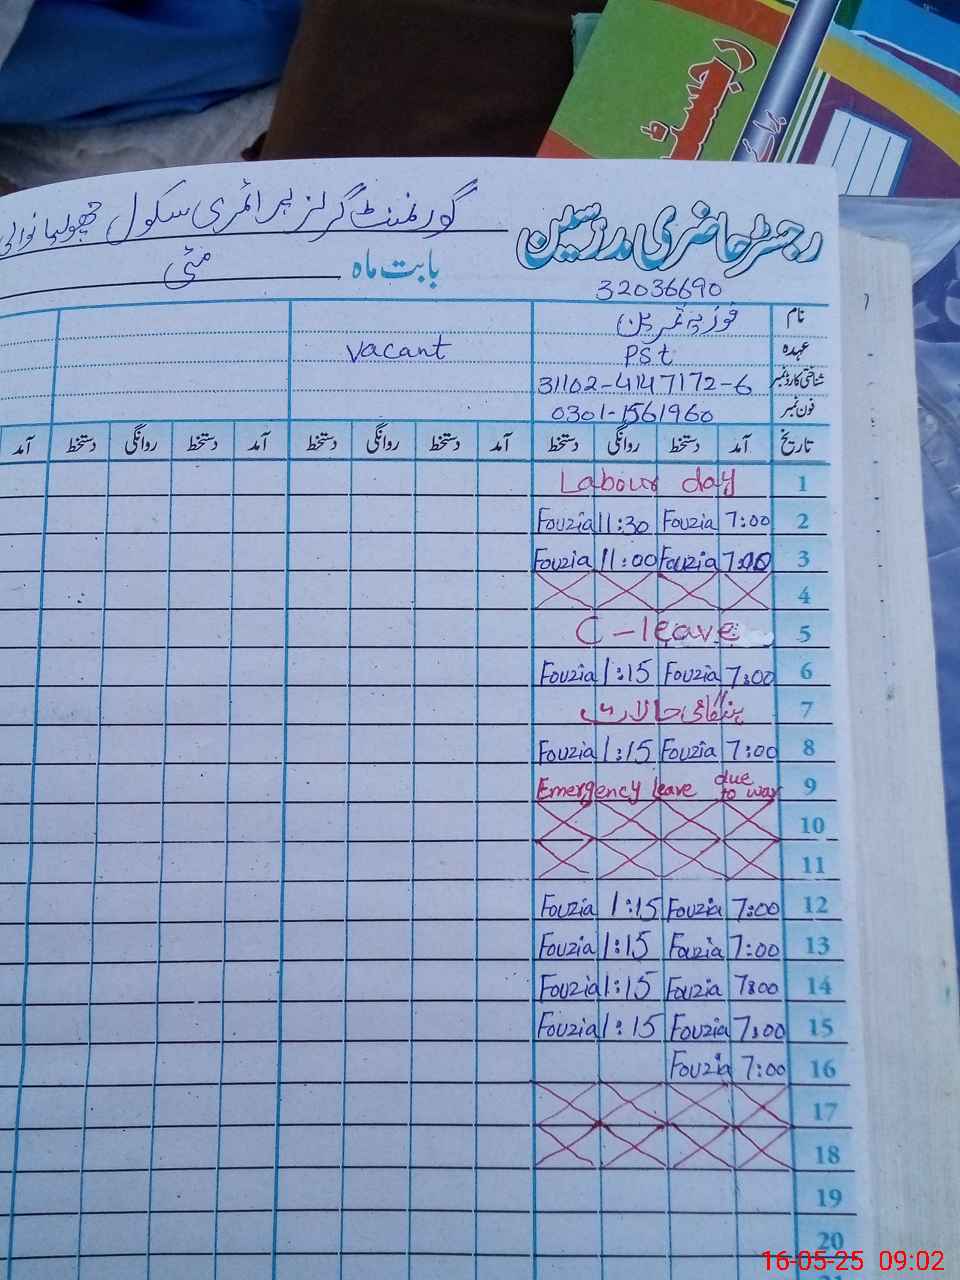 رجسٹر
رجسٹر حاضری مدرسین
گورنمنٹ گرلز پرائمری سکول
بابت ماہ مئی
32036690
نام فوزیہ نسرین
عہدہ PST vacant
شناختی کارڈ نمبر 31102-4147172-6
فون نمبر 0301-1561960
تاریخ آمد دستخط روانگی دستخط آمد دستخط روانگی دستخط آمد دستخط روانگی دستخط آمد
1 Labour day
2 7:00 Fouzia 11:30 Fouzia
3 7:00 Fouzia 11:00 Fouzia
4
5 C-leave
6 7:00 Fouzia 1:15 Fouzia
7 ہنگامی حالات
8 7:00 Fouzia 1:15 Fouzia
9 Emergency leave due to war
10
11
12 7:00 Fouzia 1:15 Fouzia
13 7:00 Fouzia 1:15 Fouzia
14 7:00 Fouzia 1:15 Fouzia
15 7:00 Fouzia 1:15 Fouzia
16 7:00 Fouzia
17
18
19
20
16-05-25 09:02